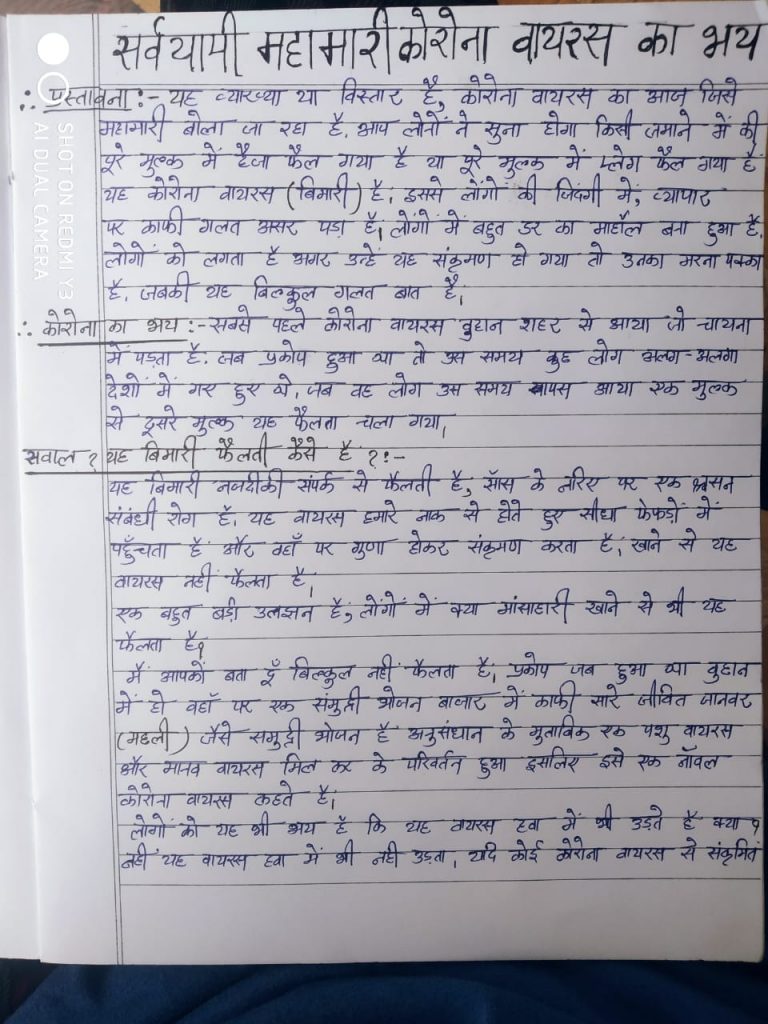 सर्वयामी महामारी कोरोना वायरस का भय
∴ प्रस्तावना :- यह व्याख्या या विस्तार है, कोरोना वायरस का आज जिसे
महामारी बोला जा रहा है. आप लोगों ने सुना होगा किसी जमाने में की
पूरे मुल्क में हैजा फैल गया है या पूरे मुल्क में प्लेग फैल गया है
यह कोरोना वायरस (बिमारी) है, इससे लोंगो की जिंदगी में, व्यापार
पर काफी गलत असर पड़ा है, लोंगो में बहुत डर का माहौल बना हुआ है.
लोगों को लगता है अगर उन्हें यह संक्रमण हो गया तो उनका मरना पक्का
है, जबकी यह बिल्कुल गलत बात है,
∴ कोरोना का भय :- सबसे पहले कोरोना वायरस वुहान शहर से आया जो चायना
में पड़ता है. जब प्रकोप हुआ था तो उस समय कुछ लोग अलग-अलग
देशों में गए हुए थे, जब वह लोग उस समय वापस आया एक मुल्क
से दूसरे मुल्क यह फैलता चला गया,
सवाल ? यह बिमारी फैलती कैसे है ?:-
यह बिमारी नजदीकी संपर्क से फैलती है, साँस के जरिए पर एक श्वसन
संबंधी रोग है. यह वायरस हमारे नाक से होते हुए सीधा फेफड़ों में
पहुँचता है और वहाँ पर गुणा होकर संक्रमण करता है, खाने से यह
वायरस नहीं फैलता है,
एक बहुत बड़ी उलझन है, लोंगों में क्या मांसाहारी खाने से भी यह
फैलता है?
मैं आपकों बता दूँ बिल्कुल नहीं फैलता है, प्रकोप जब हुआ था वुहान
में हो वहाँ पर एक संमुद्री भोजन बाजार में काफी सारे जीवित जानवर
(मछली) जैसे समुद्री भोजन है अनुसंधान के मुताबिक एक पशु वायरस
और मानव वायरस मिल कर के परिवर्तन हुआ इसलिए इसे एक नॉवल
कोरोना वायरस कहते है,
लोगों को यह भी भय है कि यह वायरस हवा में भी उड़ते है क्या ?
नहीं यह वायरस हवा में भी नही उड़ता, यदि कोई कोरोना वायरस से संक्रमित
SHOT ON REDMI Y3
AI DUAL CAMERA